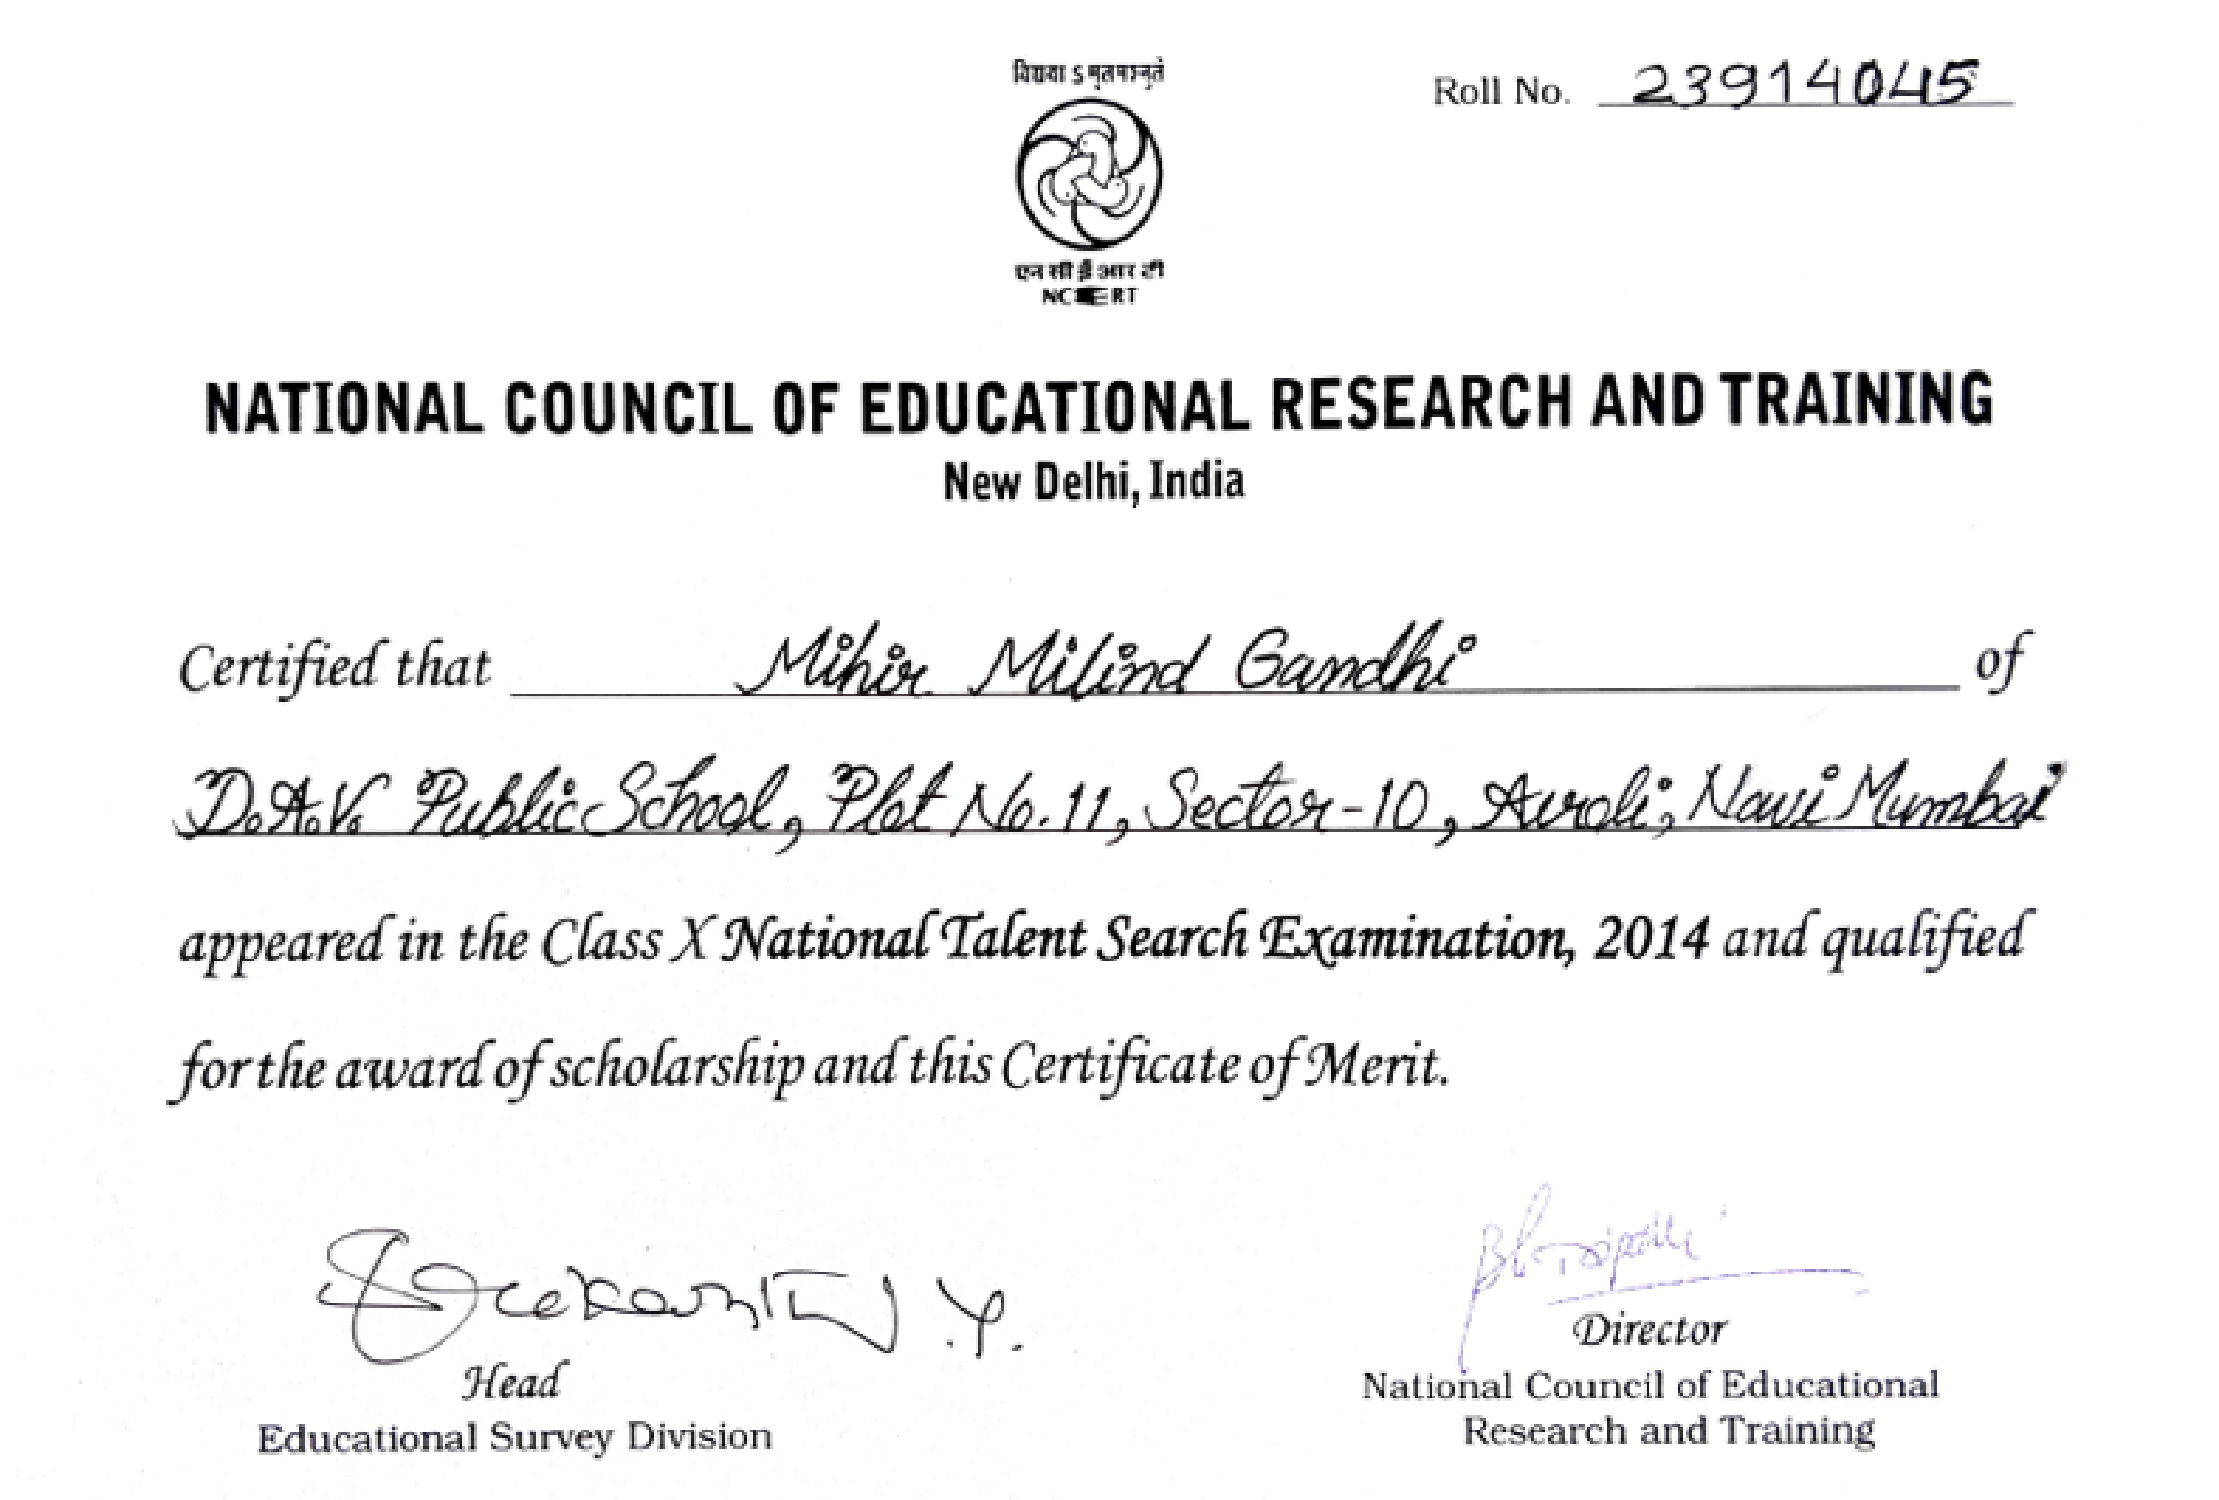 विद्यया ऽ मृतमश्नुते
Roll No. 23914045
एन सी ई आर टी
NCERT
NATIONAL COUNCIL OF EDUCATIONAL RESEARCH AND TRAINING
New Delhi, India
Certified that Mihir Milind Gandhi of
D.A.V. Public School, Plot No. 11, Sector-10, Airoli, Navi Mumbai
appeared in the Class X National Talent Search Examination, 2014 and qualified
for the award of scholarship and this Certificate of Merit.
Head
Educational Survey Division
Director
National Council of Educational
Research and Training